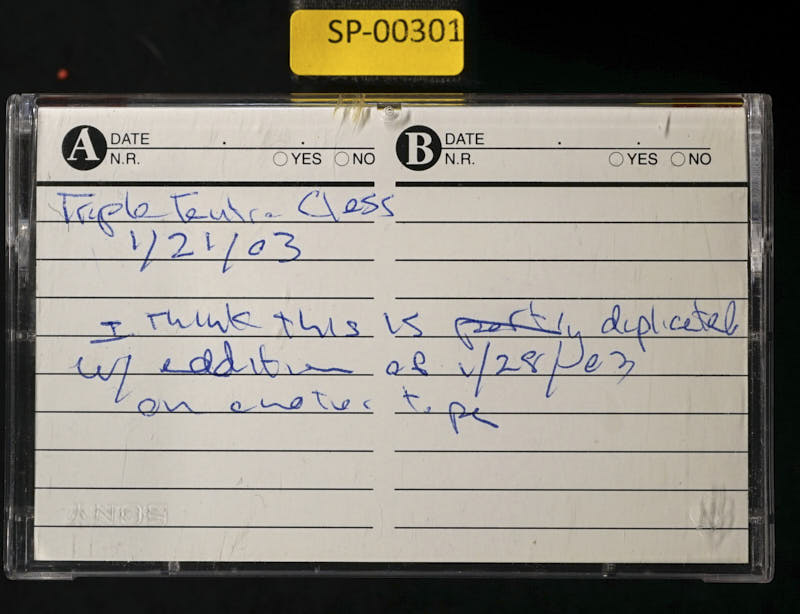 SP-00301
A DATE . .
N.R. ○ YES ○ NO
B DATE . .
N.R. ○ YES ○ NO
Triple Class
1/21/03
I think this is partly duplicated
w/ addition of 1/28/03
on another tape
SONY